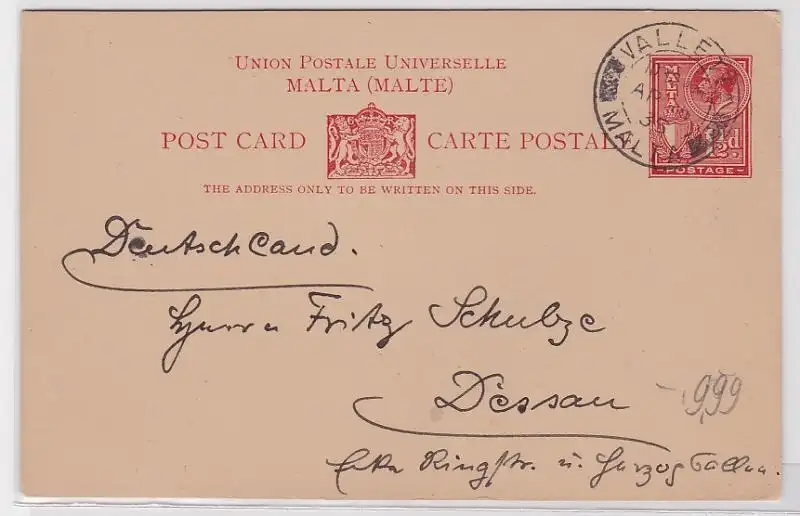 UNION POSTALE UNIVERSELLE
MALTA (MALTE)
POST CARD CARTE POSTALE
THE ADDRESS ONLY TO BE WRITTEN ON THIS SIDE.
VALLE
AP
MALTA
MALTA
½d
POSTAGE
Deutschland.
Herrn Fritz Schulze
Dessau
9,99
Ecke Ringstr. u. Herzog